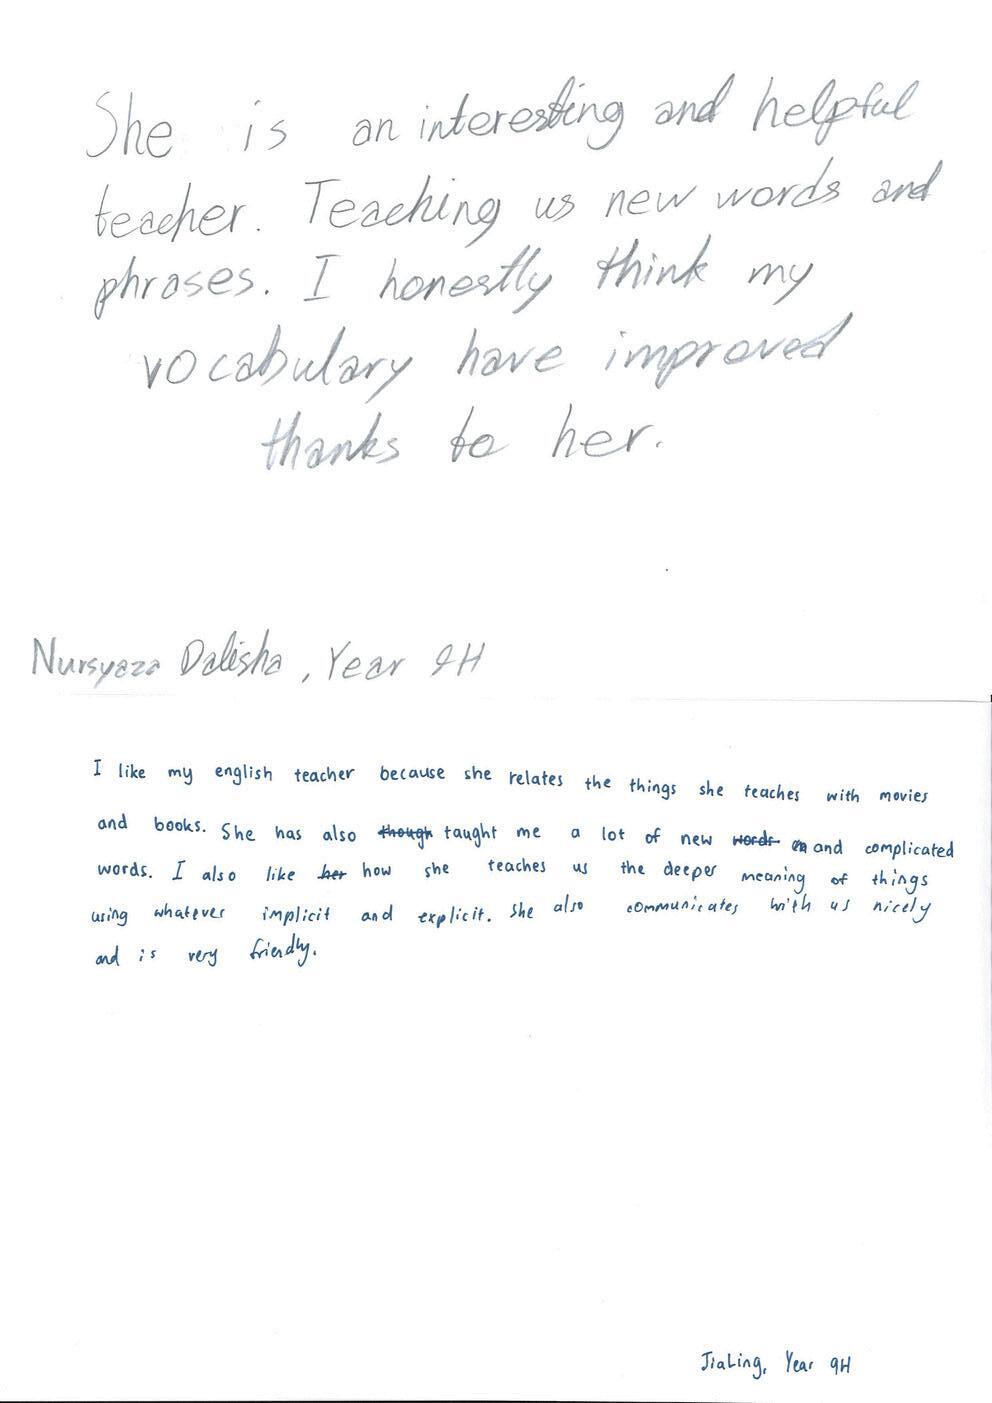 She is an interesting and helpful
teacher. Teaching us new words and
phrases. I honestly think my
vocabulary have improved
thanks to her.
Nursyaza Dalisha, Year 9H
I like my english teacher because she relates the things she teaches with movies
and books. She has also though taught me a lot of new words and complicated
words. I also like her how she teaches us the deeper meaning of things
using whatever implicit and explicit. She also communicates with us nicely
and is very friendly.
JiaLing, Year 9H